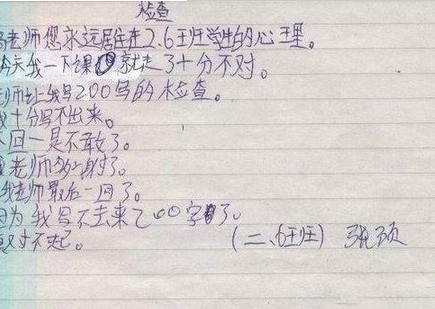 检查
老师您永远居住在2.6班学生的心理。
今天我一下课就走了十分不对。
老师让我写200写的检查。
我十分写不出来。
下回一是不敢了。
老师
我老师最后一回了。
因为我写不去来200字了。
对不起。
(二、6班) 张顽